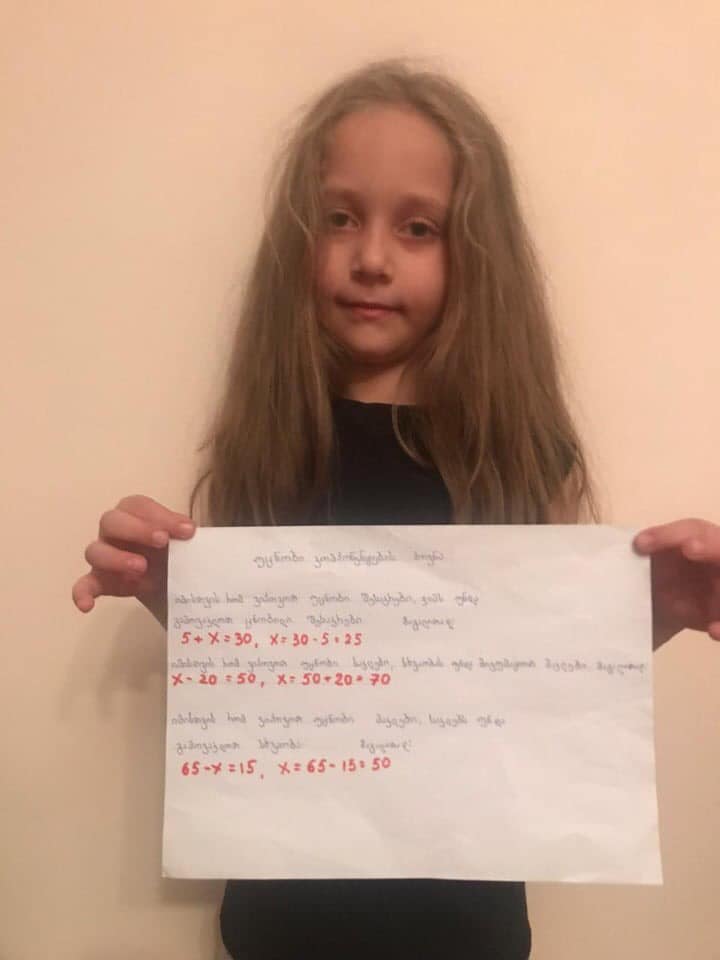 უცნობი კომპონენტების პოვნა
იმისთვის რომ ვიპოვოთ უცნობი შესაკრები, ჯამს უნდა
გამოვაკლოთ ცნობილი შესაკრები. მაგალითად
5 + X = 30, X = 30 - 5 = 25
იმისთვის რომ ვიპოვოთ უცნობი საკლები, სხვაობას უნდა მივუმატოთ მაკლები. მაგალითად:
X - 20 = 50, X = 50 + 20 = 70
იმისთვის რომ ვიპოვოთ უცნობი მაკლები, საკლებს უნდა
გამოვაკლოთ სხვაობა. მაგალითად:
65 - X = 15, X = 65 - 15 = 50